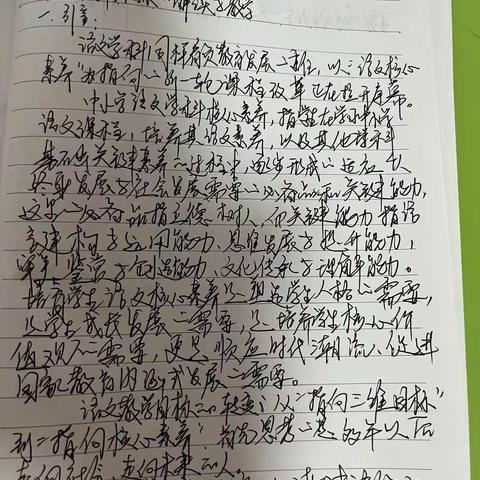 一、引言
语文学科同样肩负教育发展之重任,以“语文核心
素养”为指向的新一轮课程改革正在拉开序幕。
中小学语文学科核心素养,指学生在学习中小学
语文课程,培养其语文素养,以及其他学科
素养的关键素养的过程中,逐步形成的适应个人
终身发展与社会发展需要的必备品格和关键能力,
这里的必备品格指立德树人,而关键能力指语
言建构与运用能力、思维发展与提升能力、
审美鉴赏与创造能力、文化传承与理解能力。
培育学生语文核心素养是塑造学生人格之需要,
是学生成长发展之需要,是培育学生核心价
值观之需要,更是顺应时代潮流、促进
国家教育内涵式发展之需要。
语文教学目标的转变:从“指向三维目标”
到“指向核心素养”,首先思考的是多年以后
走向社会、走向未来的人。